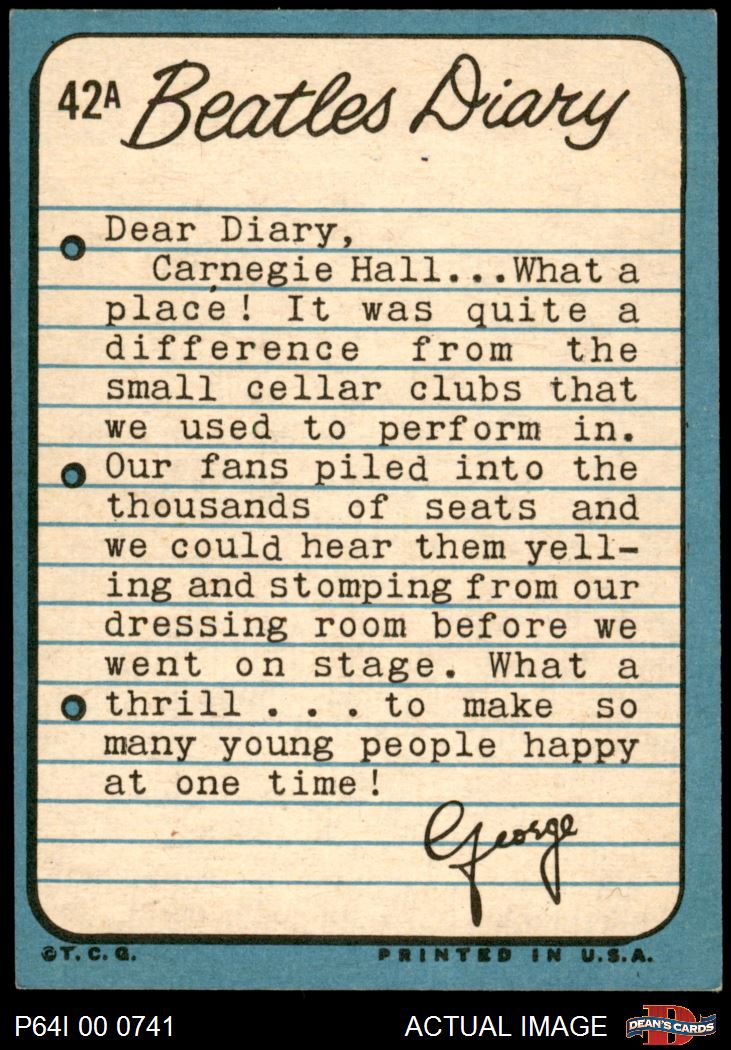 42A Beatles Diary
Dear Diary,
Carnegie Hall...What a
place! It was quite a
difference from the
small cellar clubs that
we used to perform in.
Our fans piled into the
thousands of seats and
we could hear them yell-
ing and stomping from our
dressing room before we
went on stage. What a
thrill . . . to make so
many young people happy
at one time!
George
©T.C.G. PRINTED IN U.S.A.
P64I 00 0741 ACTUAL IMAGE DEAN'S CARDS